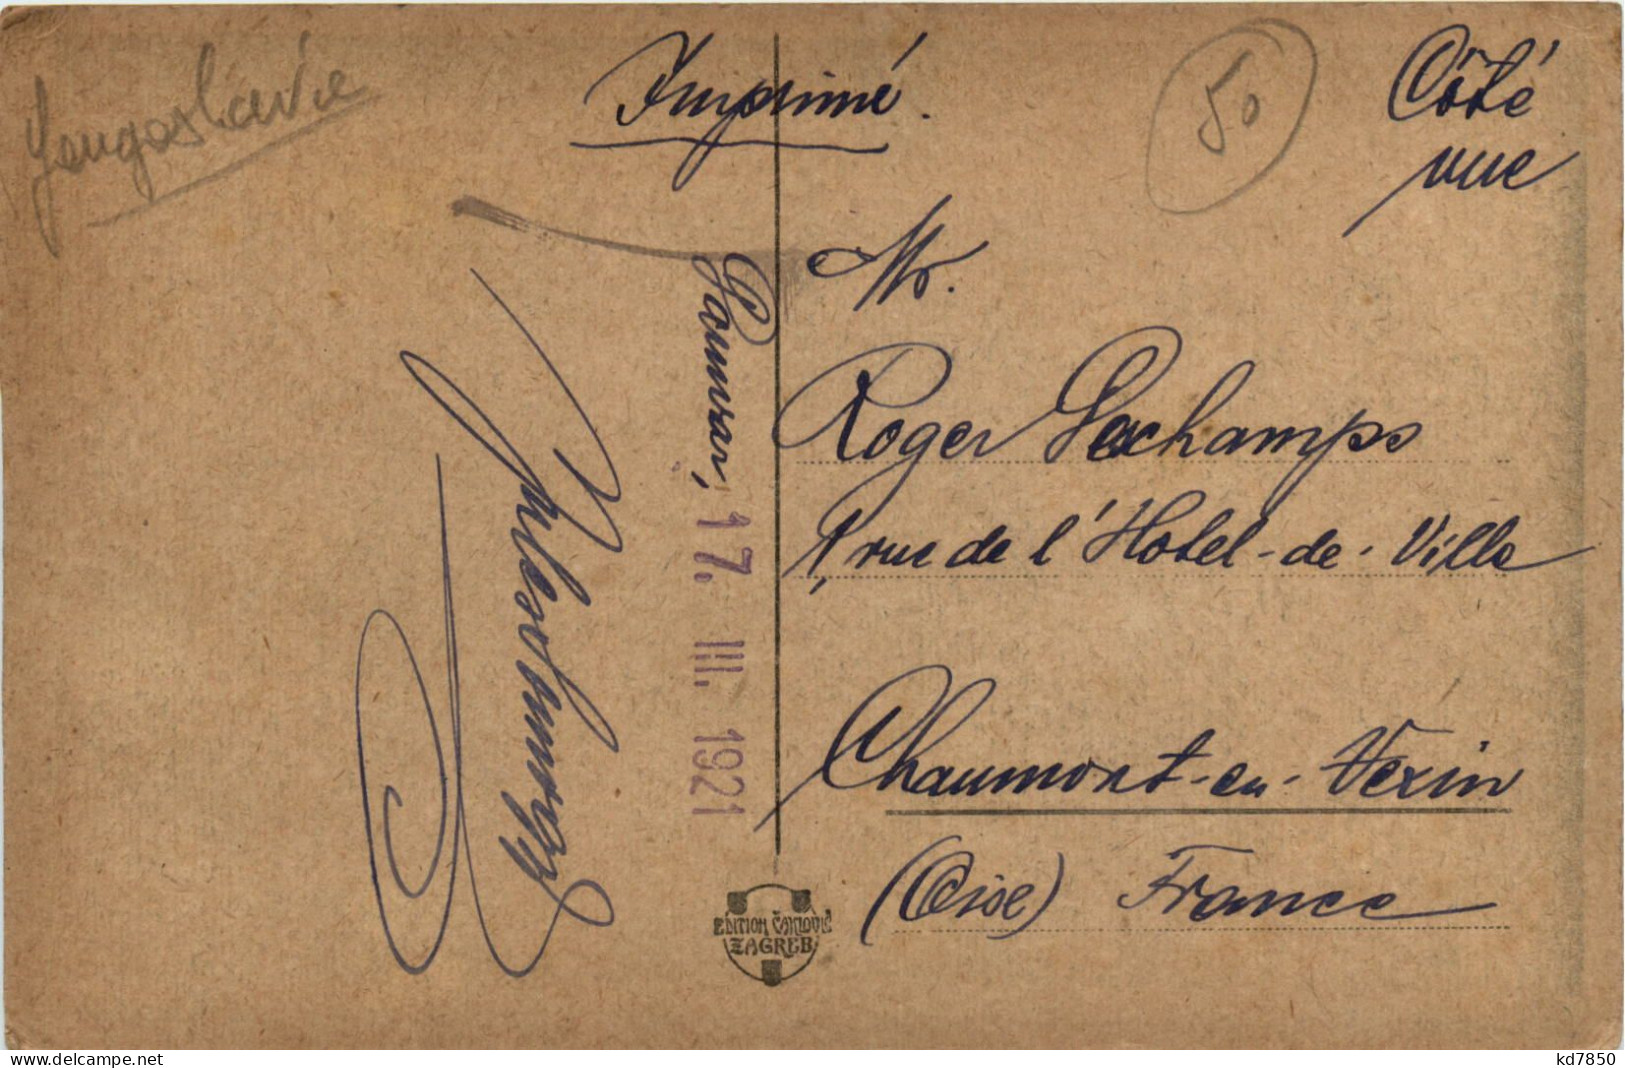 Yougoslavie
Imprimé.
50
Côté
vue
Mr.
Roger Deschamps
1, rue de l'Hotel-de-Ville
Chaumont-en-Vexin
(Oise) France
17. III. 1921
EDITION ČAKLOVIĆ
ZAGREB
www.delcampe.net
kd7850